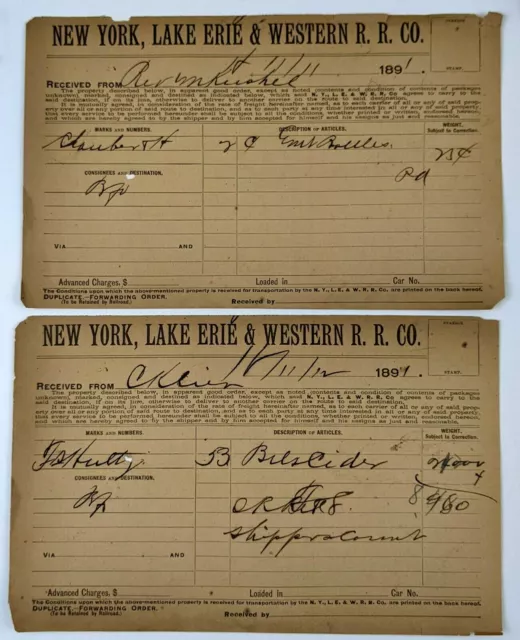 NEW YORK, LAKE ERIE & WESTERN R. R. CO.
11/11 1891.
RECEIVED FROM
The property described below, in apparent good order, except as noted contents and condition of contents of packages
unknown, marked, consigned and destined as indicated below, which said N. Y., L. E. & W. R. R. Co. agrees to carry to the
said destination, if on its lines, otherwise to deliver to another carrier on the route to said destination.
It is mutually agreed, in consideration of the rate of freight hereinafter named, as to each carrier of all or any of said prop-
erty over all or any portion of said route to destination, and as to each party at any time interested in all or any of said property,
that every service to be performed hereunder shall be subject to all the conditions, whether printed or written, herein contained,
and which are hereby agreed to by the shipper and by him accepted for himself and his assigns as just and reasonable.
MARKS AND NUMBERS.
DESCRIPTION OF ARTICLES.
WEIGHT.
Subject to Correction.
Bottles
CONSIGNEES AND DESTINATION.
Pd
VIA AND
Advanced Charges, $ Loaded in Car No.
The Conditions upon which the above-mentioned property is received for transportation by the N. Y., L. E. & W. R. R. Co. are printed on the back hereof.
DUPLICATE.—FORWARDING ORDER.
(To be Retained by Railroad.)
Received by
NEW YORK, LAKE ERIE & WESTERN R. R. CO.
11/12 1891.
STAMP.
RECEIVED FROM
The property described below, in apparent good order, except as noted contents and condition of contents of packages
unknown, marked, consigned and destined as indicated below, which said N. Y., L. E. & W. R. R. Co. agrees to carry to the
said destination, if on its lines, otherwise to deliver to another carrier on the route to said destination.
It is mutually agreed, in consideration of the rate of freight hereinafter named, as to each carrier of all or any of said prop-
erty over all or any portion of said route to destination, and as to each party at any time interested in all or any of said property,
that every service to be performed hereunder shall be subject to all the conditions, whether printed or written, herein contained,
and which are hereby agreed to by the shipper and by him accepted for himself and his assigns as just and reasonable.
MARKS AND NUMBERS.
DESCRIPTION OF ARTICLES.
WEIGHT.
Subject to Correction.
53 Bbls Cider
CONSIGNEES AND DESTINATION.
Shippers Count
VIA AND
Advanced Charges, $ Loaded in Car No.
The Conditions upon which the above-mentioned property is received for transportation by the N. Y., L. E. & W. R. R. Co. are printed on the back hereof.
DUPLICATE.—FORWARDING ORDER.
(To be Retained by Railroad.)
Received by